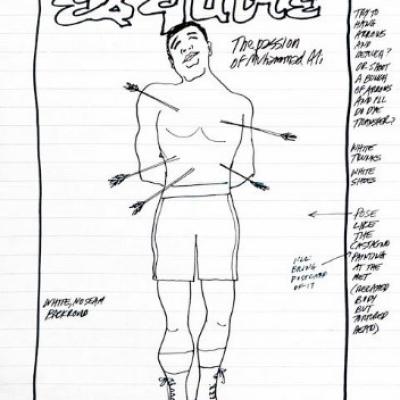 Esquire
The passion
of Muhammad Ali
TRY TO
HANG
ARROWS
AND
OR SHOOT
A BUNCH
OF ARROWS
AND I'LL
DO DYE
TRANSFER?
WHITE
TRUNKS
WHITE
SHOES
POSE
LIKE
THE
CASTAGNO
PAINTING
AT THE
MET
(RELAXED
BODY
BUT
TORTURED
HEAD)
I'LL
BRING
POSTCARD
OF IT
WHITE, NO SEAM
BACKROUND